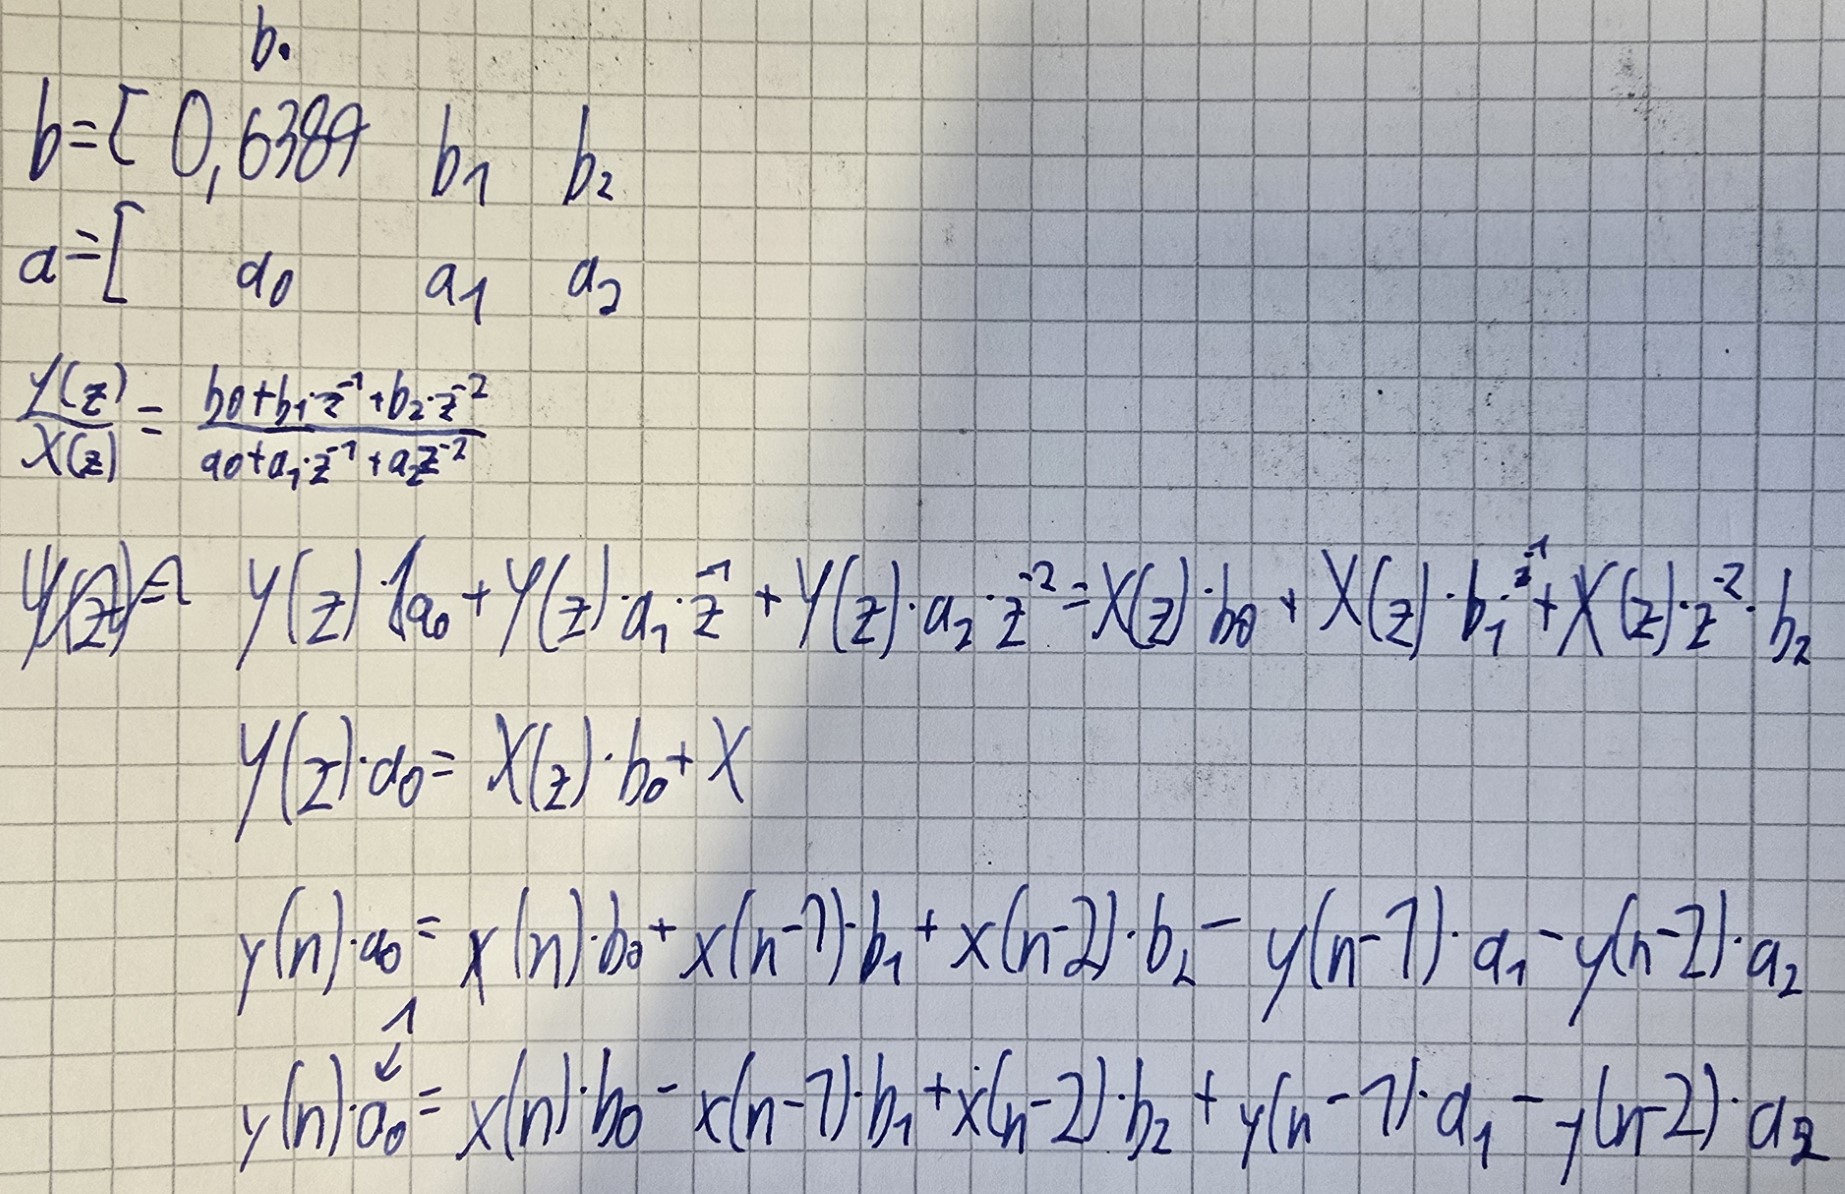 b₀
b=[ 0,6389 b₁ b₂
a=[ a₀ a₁ a₂
Y(z)/X(z) = (b0+b₁·z⁻¹+b₂·z⁻²)/(a0+a₁·z⁻¹+a₂z⁻²)
Y(z)·a₀+Y(z)·a₁·z⁻¹+Y(z)·a₂·z⁻²=X(z)·b0+X(z)·b₁·z⁻¹+X(z)·z⁻²·b₂
Y(z)·a₀= X(z)·b₀+X
y(n)·a₀= x(n)·b₀+x(n-1)·b₁+x(n-2)·b₂-y(n-1)·a₁-y(n-2)·a₂
1
y(n)·a₀=x(n)·b₀-x(n-1)·b₁+x(n-2)·b₂+y(n-1)·a₁-y(n-2)·a₂